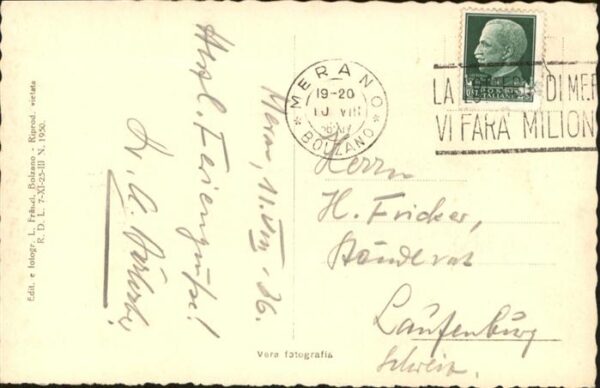 Edit. e fotogr. L. Fränzl, Bolzano - Riprod. vietata
R. D. L. 7-XI-25-III N. 1950.
Meran, 11. VIII. 36.
Herzl. Feriengrüße!
Dr. A.
MERANO
19-20
VIII
BOLZANO
POSTE ITALIANE
LA DI MER
VI FARÀ MILION
Herrn
H. Fricker,
Ständerat
Laufenburg
Schweiz.
Vera fotografia